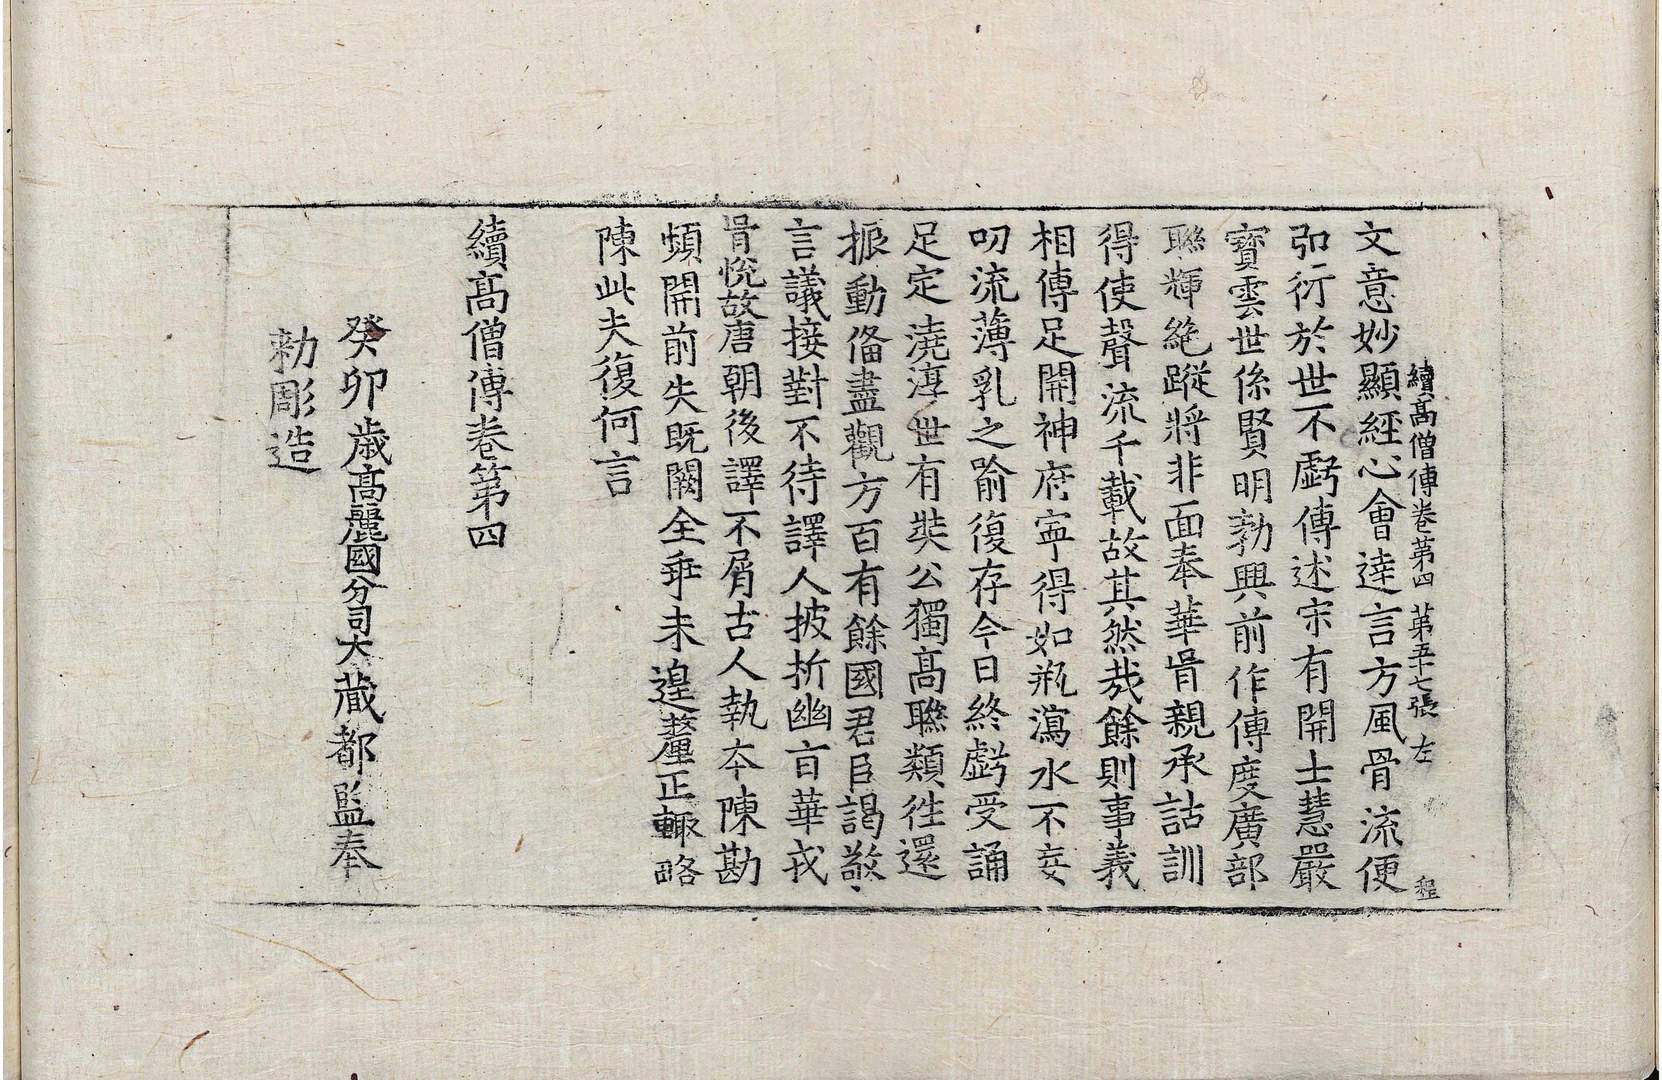 續高僧傳卷第四 第五十七張 左 程
文意妙顯經心會達言方風骨流便
弘衍於世不虧傳述宋有開士慧嚴
寶雲世係賢明勃興前作傳度廣部
聯輝絶蹤將非面奉華胥親承詁訓
得使聲流千載故其然哉餘則事義
相傳足開神府寧得如瓶瀉水不妄
叨流薄乳之喻復存今日終虧受誦
足定澆淳世有奘公獨高聯類徃還
振動俻盡觀方百有餘國君臣謁敬
言議接對不待譯人披析幽旨華戎
胥悅故唐朝後譯不屑古人執夲陳勘
頻開前失既闕全乖未遑釐正輙略
陳此夫復何言
續高僧傳卷第四
癸卯歳高麗國分司大藏都監奉
勑彫造